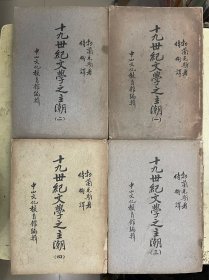 勃蘭兌斯著
侍桁譯
十九世紀文學之主潮(一)
中山文化教育館編輯
勃蘭兌斯著
侍桁譯
十九世紀文學之主潮(二)
中山文化教育館編輯
勃蘭兌斯著
侍桁譯
十九世紀文學之主潮(三)
中山文化教育館編輯
勃蘭兌斯著
侍桁譯
十九世紀文學之主潮(四)
中山文化教育館編輯